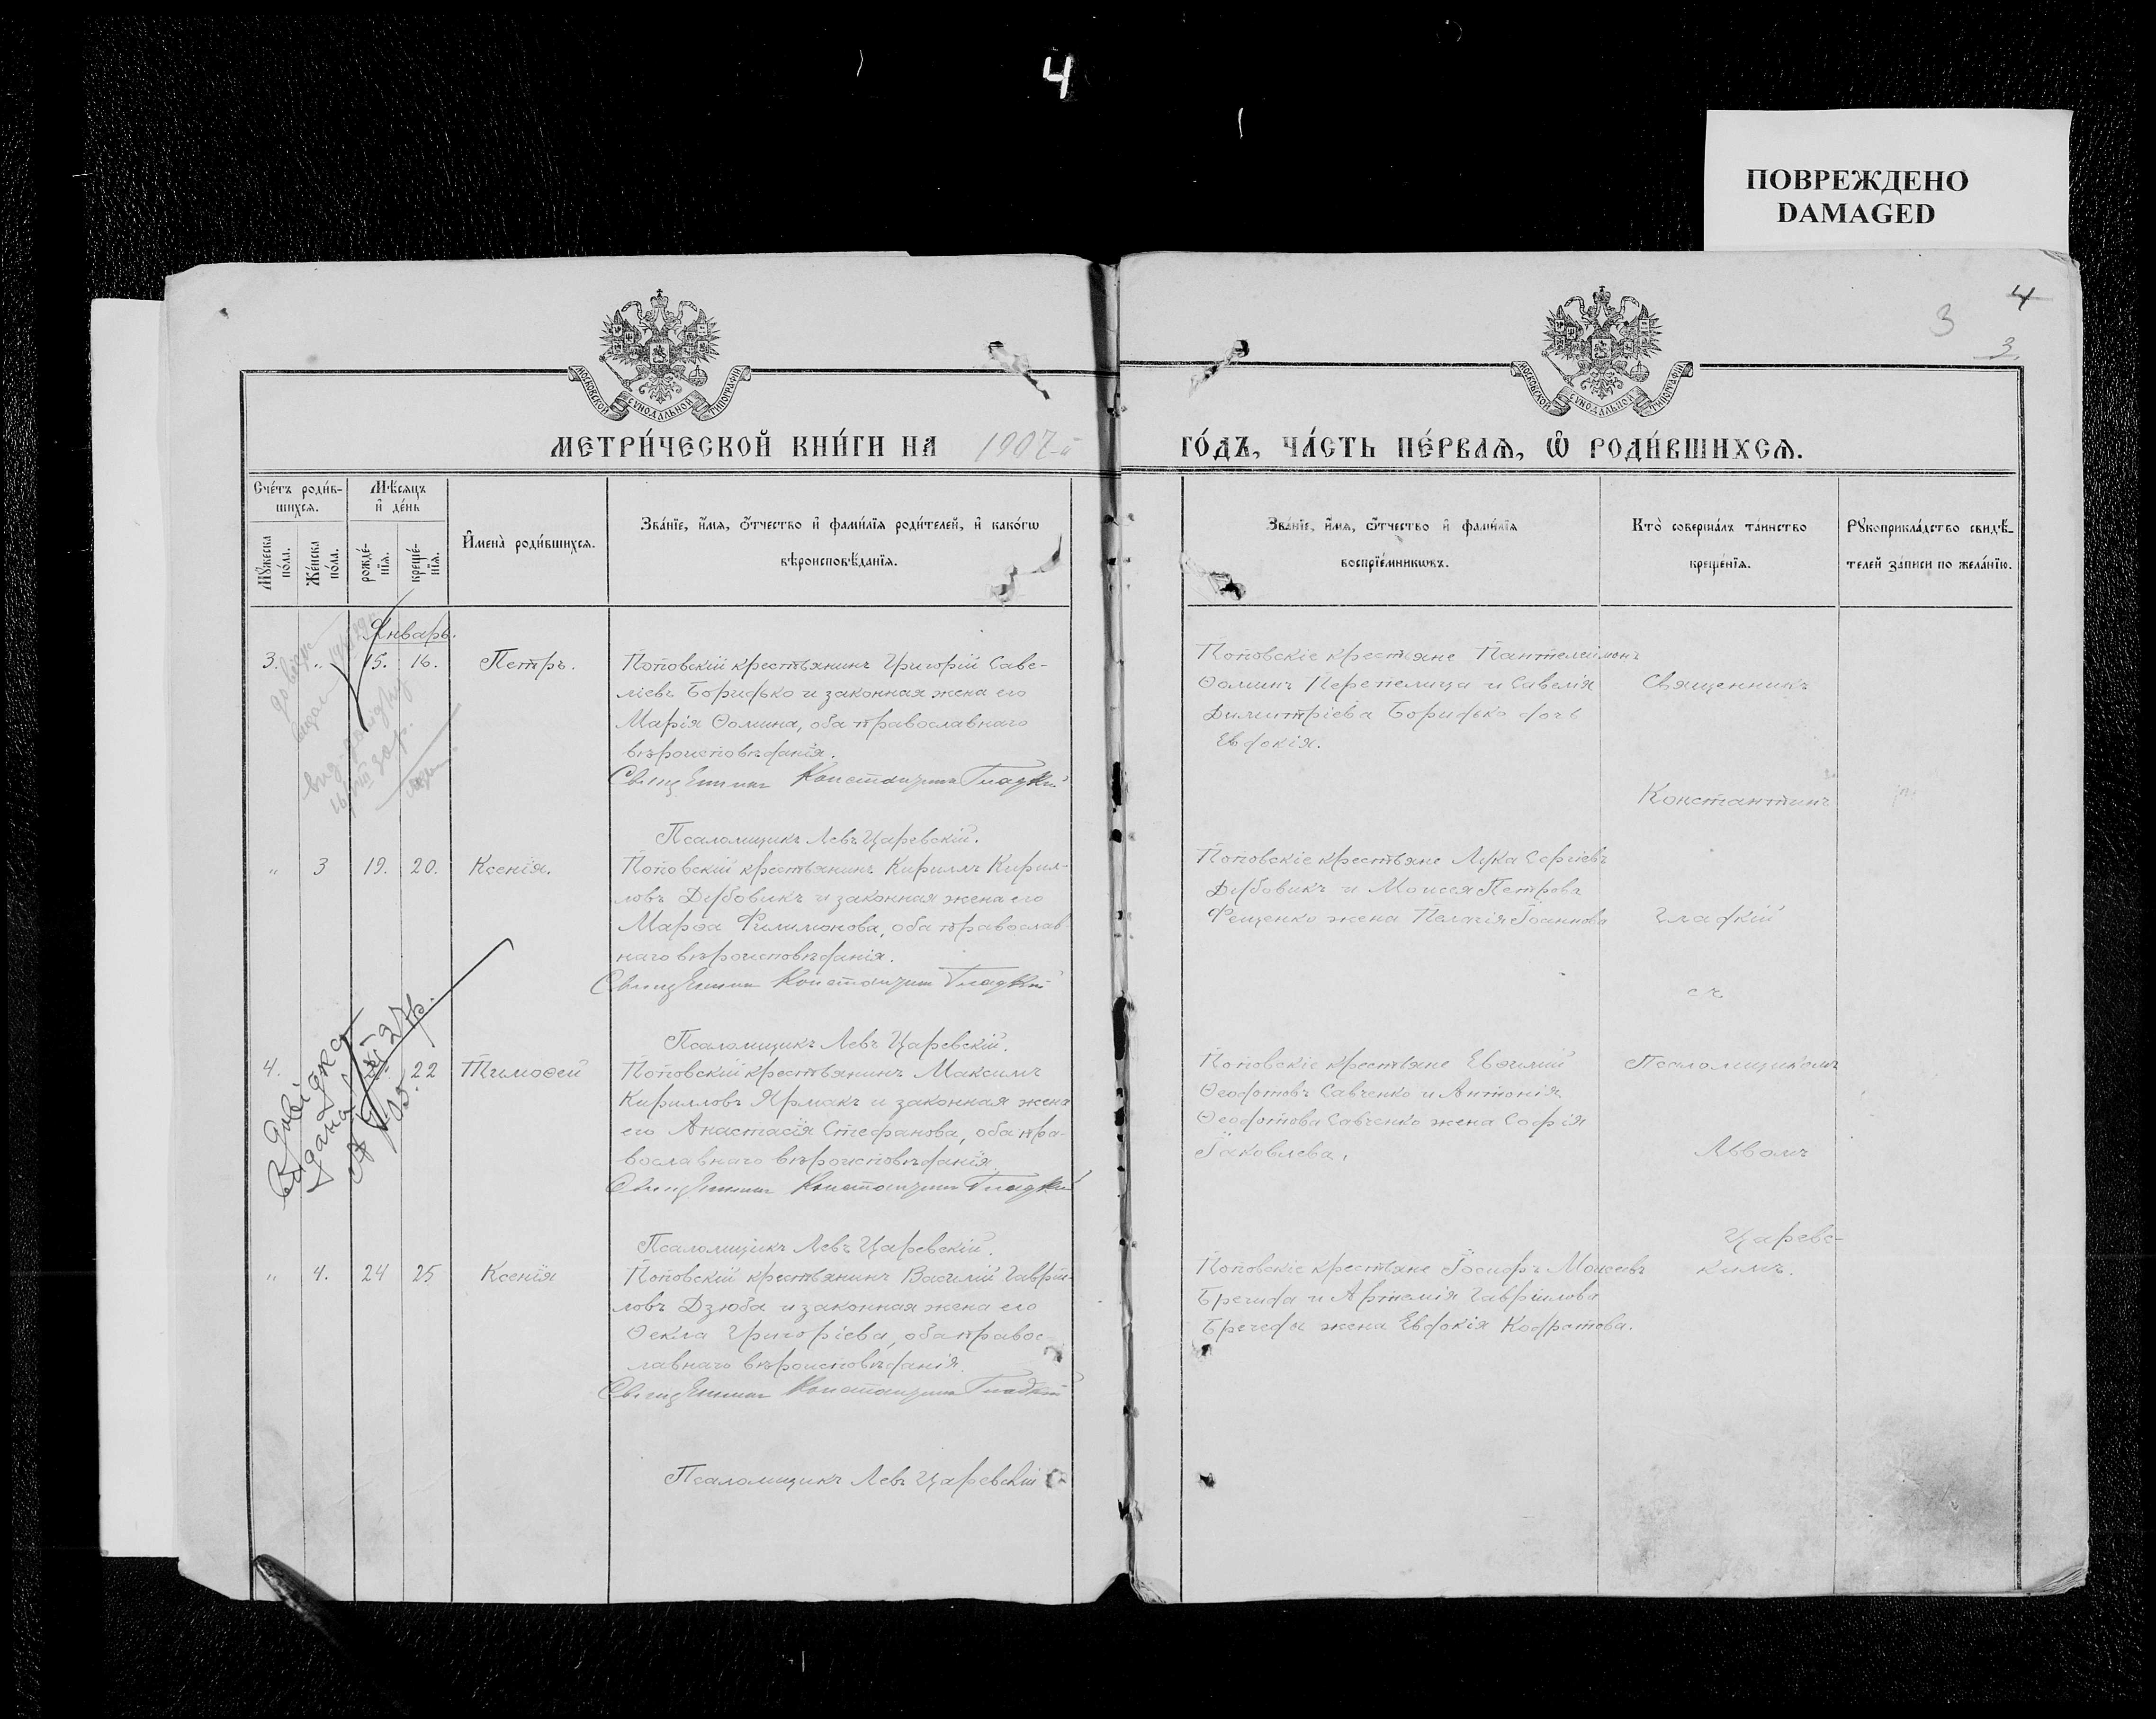 4
ПОВРЕЖДЕНО
DAMAGED
4
3
3.
МОСКОВСКОЙ СУНОДАЛЬНОЙ ТИПОГРАФІИ
МОСКОВСКОЙ СУНОДАЛЬНОЙ ТИПОГРАФІИ
МЕТРИ́ЧЕСКОЙ КНИ́ГИ НА 1907-й ГО́ДЪ, ЧА́СТЬ ПЕ́РВАѦ, Ѽ РОДИ́ВШИХСѦ.
Сче́тъ роди́в-
шихсѧ.
Мꙋжеска по́ла.
Же́нска по́ла.
Мѣ́сѧцъ
и҆ де́нь
рожде́-
нїѧ.
креще́-
нїѧ.
И҆мена̀ роди́вшихсѧ.
Зва́нїе, и҆́мѧ, ѻ҆́тчество и҆ фами́лїѧ роди́телей, и҆ како́гѡ
вѣроисповѣ́данїѧ.
Зва́нїе, и҆́мѧ, ѻ҆́тчество и҆ фами́лїѧ
воспрїе́мникѡвъ.
Кто̀ соверша́лъ таинство
креще́нїѧ.
Рꙋкоприкла́дство свидѣ́-
телей за́писи по жела́нїю.
Январь.
3. „ 15. 16. Петръ.
Поповскій крестьянинъ Григорій Саве-
ліевъ Боридько и законная жена его
Марія Ѳомина, оба православнаго
вѣроисповѣданія.
Священникъ Константинъ Гладкій
Псаломщикъ Левъ Царевскій.
Поповскіе крестьяне Пантелеимонъ
Ѳоминъ Перепелица и Савелія
Димитріева Боридько дочь
Евдокія.
Священникъ
Константинъ
„ 3 19. 20. Ксенія.
Поповскій крестьянинъ Кириллъ Кирил-
ловъ Дубовикъ и законная жена его
Марѳа Филимонова, оба православ-
наго вѣроисповѣданія.
Священникъ Константинъ Гладкій
Псаломщикъ Левъ Царевскій.
Поповскіе крестьяне Лука Сергіевъ
Дубовикъ и Моисея Петрова
Фещенко жена Пелагія Іоаннова
Гладкій
съ
4. 22 Тимоѳей
Поповскій крестьянинъ Максимъ
Кирилловъ Ярмакъ и законная жена
его Анастасія Стефанова, оба пра-
вославнаго вѣроисповѣданія.
Священникъ Константинъ Гладкій
Псаломщикъ Левъ Царевскій.
Поповскіе крестьяне Евѳимій
Ѳеодотовъ Савченко и Антонія
Ѳеодотова Савченко жена Софія
Іаковлева.
Псаломщикомъ
Львомъ
Царевс-
кимъ.
„ 4. 24 25 Ксенія
Поповскій крестьянинъ Василій Гаврiи-
ловъ Дзюба и законная жена его
Ѳекла Григоріева, оба право-
славнаго вѣроисповѣданія.
Священникъ Константинъ Гладкій
Псаломщикъ Левъ Царевскій
Поповскіе крестьяне Іосифъ Моисеевъ
Бречида и Артемія Гавріилова
жена Евдокія Кодратова.